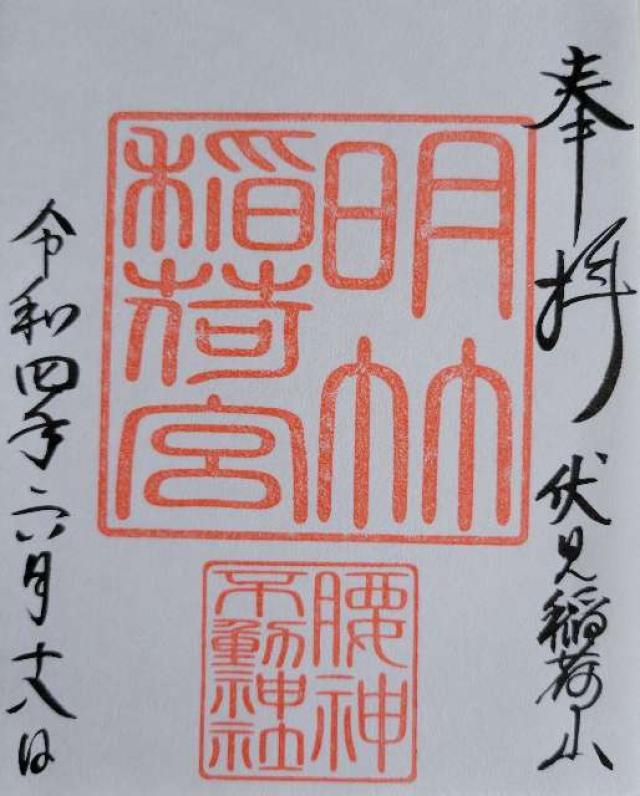 奉拝 伏見稲荷山
明竹
稲荷宮
腰神
不動神社
令和四年六月十八日